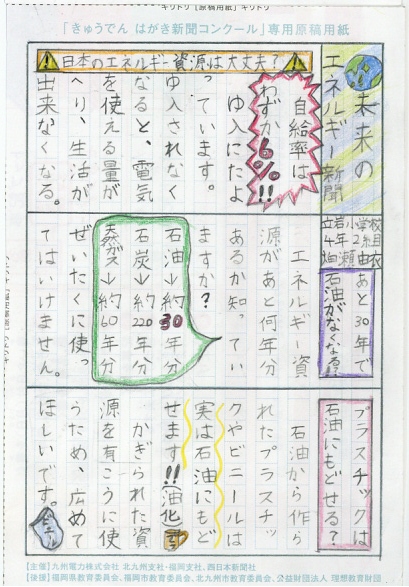 キリトリ【原稿用紙】キリトリ
「きゅうでん はがき新聞コンクール」専用原稿用紙
未来の
エネルギー新聞
日本のエネルギー資源は大丈夫?
自給率は
わずか6%!!
ゆ入にたよ
っています。
ゆ入されなく
なると、電気
を使える量が
へり、生活が
出来なくなる。
学校
小
年 組
4 2
あと30年で
石油がなくなる!?
エネルギー資
源があと何年分
あるか知ってい
ますか?
石油→約30年分
石炭→約220年分
天然ガス→約60年分
ぜいたくに使っ
てはいけません。
プラスチックは
石油にもどせる?
石油から作ら
れたプラスチッ
クやビニールは
実は石油にもど
せます!!油化
かぎられた資
源を有こうに使
うため、広めて
ほしいです。
【主催】九州電力株式会社 北九州支社・福岡支社、西日本新聞社
【後援】福岡県教育委員会、福岡市教育委員会、北九州市教育委員会、公益財団法人 理想教育財団